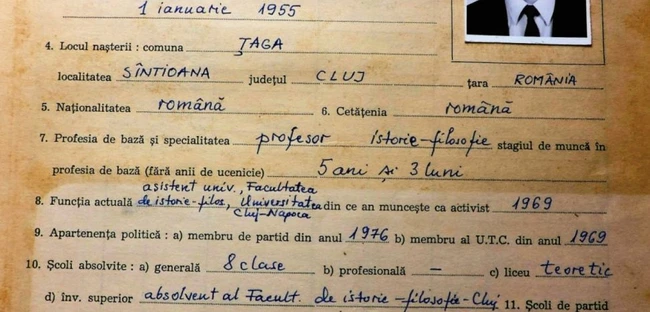 1 ianuarie 1955
4. Locul nașterii : comuna ȚAGA
localitatea SÎNTIOANA județul CLUJ țara ROMÂNIA
5. Naționalitatea română 6. Cetățenia română
7. Profesia de bază și specialitatea profesor istorie-filosofie stagiul de muncă în
profesia de bază (fără anii de ucenicie) 5 ani și 3 luni
asistent univ., Facultatea
8. Funcția actuală de istorie-filos, Universitatea din ce an muncește ca activist 1969
Cluj-Napoca
9. Apartenența politică : a) membru de partid din anul 1976 b) membru al U.T.C. din anul 1969
10. Școli absolvite : a) generală 8 clase b) profesională — c) liceu teoretic
d) înv. superior absolvent al Facult. de istorie-filosofie-Cluj 11. Școli de partid